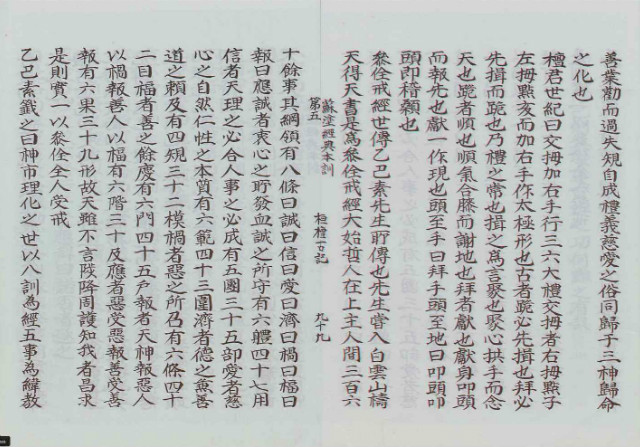 善業勸而過失規自成禮義慈愛之俗同歸于三神歸命
之化也
檀君世紀曰交拇加右手行三六大禮交拇者右拇點子
左拇點亥而加右手作太極形也古者跪必先揖也拜必
先揖而跪也乃禮之常也揖之爲言聚也聚心拱手而念
天也跪者順也順氣合膝而謝地也拜者獻也獻身叩頭
而報先也獻一作現也頭至手曰拜手頭至地曰叩頭叩
頭即稽顙也
叅佺戒經世傳乙巴素先生所傳也先生嘗入白雲山禱
天得天書是爲叅佺戒經大始哲人在上主人間三百六
蘇塗經典本訓第五 桓檀古記 九十九
十餘事其綱領有八條曰誠曰信曰愛曰濟曰禍曰福曰
報曰應誠者衷心之所發血誠之所守有六體四十七用
信者天理之必合人事之必成有五團三十五部愛者慈
心之自然仁性之本質有六範四十三圍濟者德之兼善
道之賴及有四規三十二模禍者惡之所召有六條四十
二目福者善之餘慶有六門四十五戶報者天神報惡人
以禍報善人以福有六階三十及應者惡受惡報善受善
報有六果三十九形故天雖不言陟降周護知我者昌求
是則實一以叅佺全人受戒
乙巴素籤之曰神市理化之世以八訓爲經五事爲緯敎